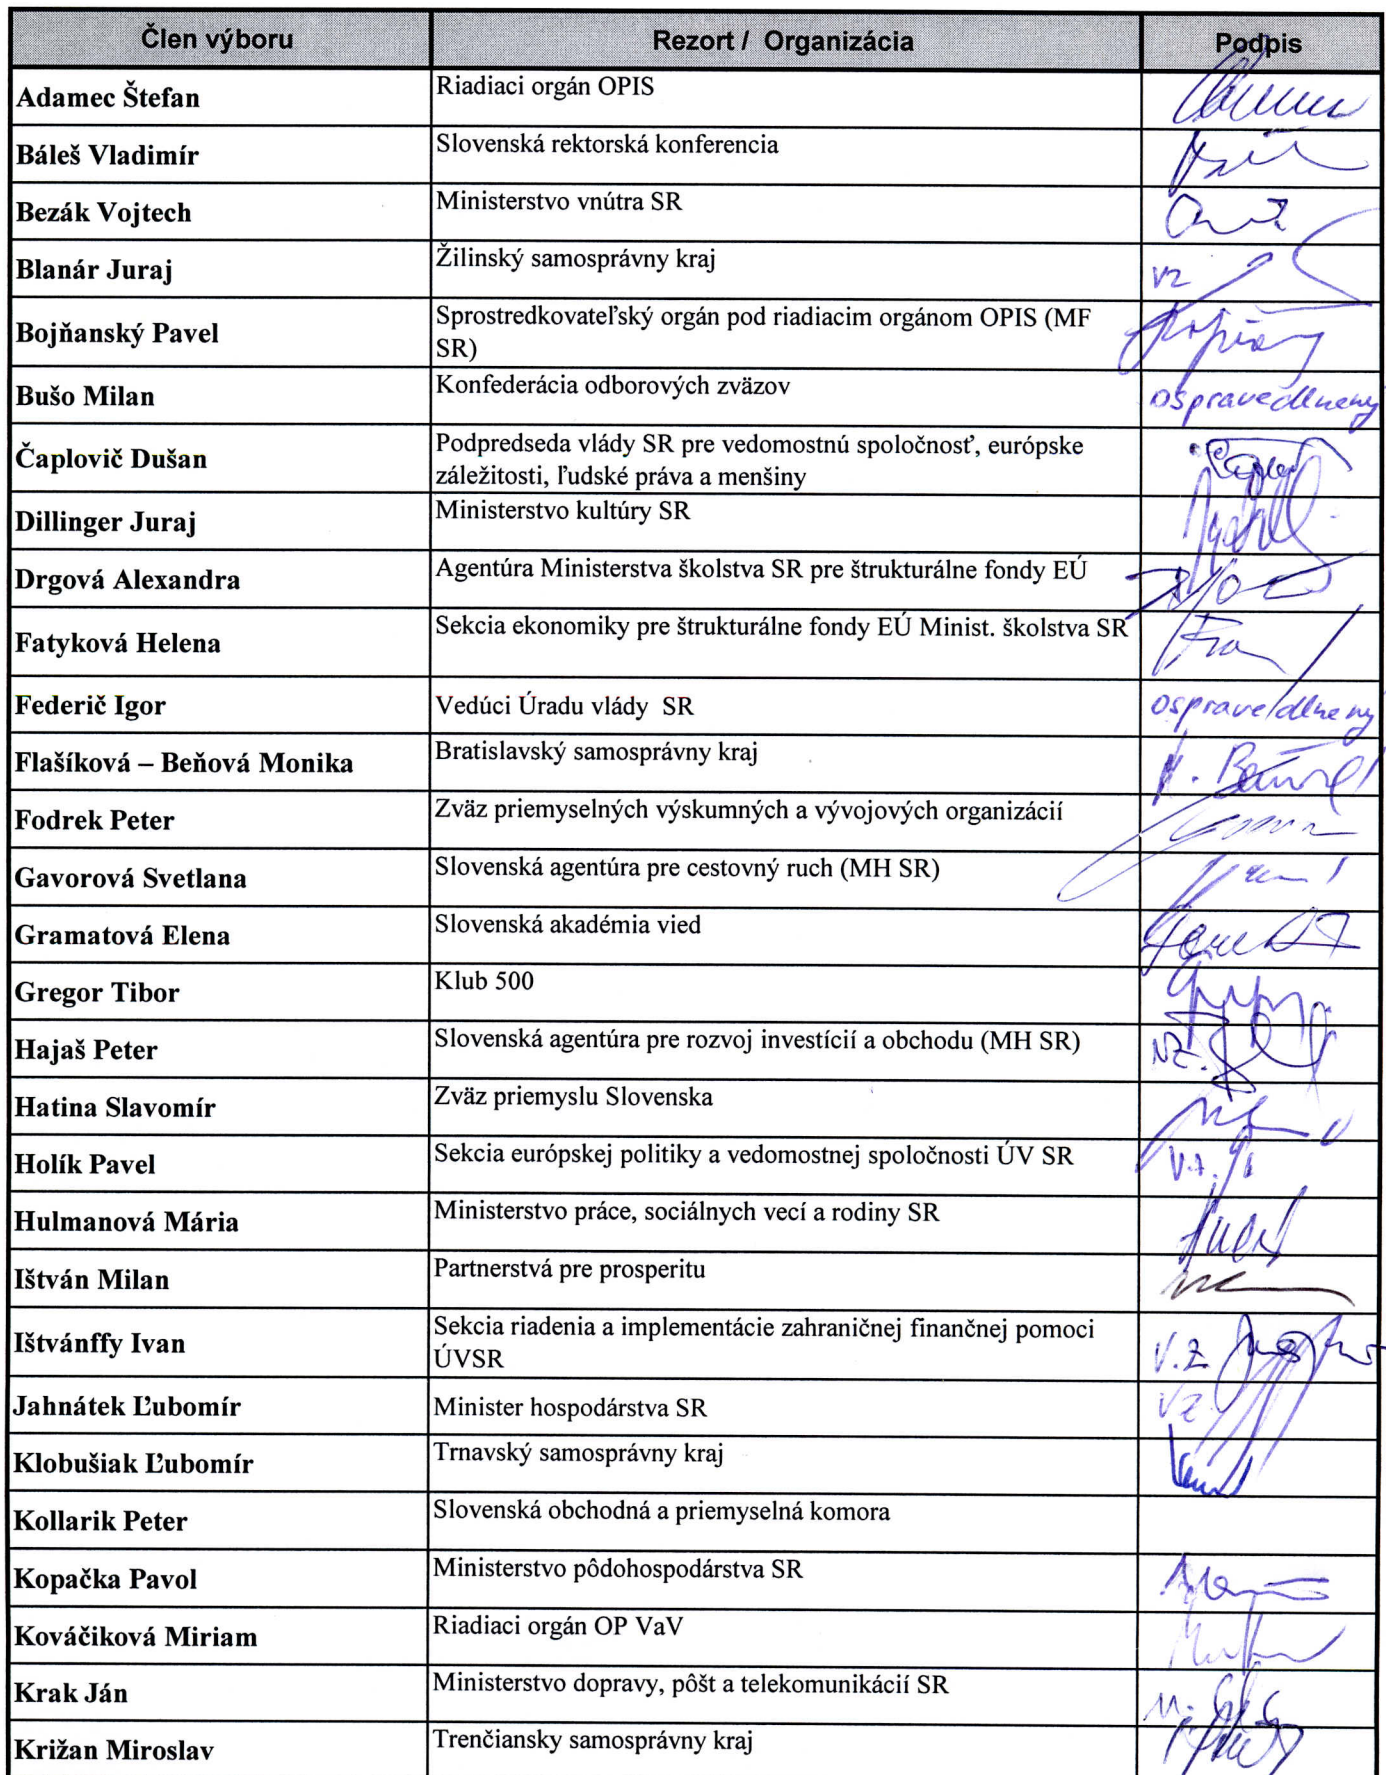 Člen výboru Rezort / Organizácia Podpis
Adamec Štefan Riadiaci orgán OPIS
Báleš Vladimír Slovenská rektorská konferencia
Bezák Vojtech Ministerstvo vnútra SR
Blanár Juraj Žilinský samosprávny kraj vz
Bojňanský Pavel Sprostredkovateľský orgán pod riadiacim orgánom OPIS (MF
SR)
Bušo Milan Konfederácia odborových zväzov ospravedlneny
Čaplovič Dušan Podpredseda vlády SR pre vedomostnú spoločnosť, európske
záležitosti, ľudské práva a menšiny
Dillinger Juraj Ministerstvo kultúry SR
Drgová Alexandra Agentúra Ministerstva školstva SR pre štrukturálne fondy EÚ
Fatyková Helena Sekcia ekonomiky pre štrukturálne fondy EÚ Minist. školstva SR
Federič Igor Vedúci Úradu vlády SR ospravedlneny
Flašíková – Beňová Monika Bratislavský samosprávny kraj
Fodrek Peter Zväz priemyselných výskumných a vývojových organizácií
Gavorová Svetlana Slovenská agentúra pre cestovný ruch (MH SR)
Gramatová Elena Slovenská akadémia vied
Gregor Tibor Klub 500
Hajaš Peter Slovenská agentúra pre rozvoj investícií a obchodu (MH SR)
Hatina Slavomír Zväz priemyslu Slovenska
Holík Pavel Sekcia európskej politiky a vedomostnej spoločnosti ÚV SR
Hulmanová Mária Ministerstvo práce, sociálnych vecí a rodiny SR
Ištván Milan Partnerstvá pre prosperitu
Ištvánffy Ivan Sekcia riadenia a implementácie zahraničnej finančnej pomoci
ÚVSR V.Z
Jahnátek Ľubomír Minister hospodárstva SR vz
Klobušiak Ľubomír Trnavský samosprávny kraj
Kollarik Peter Slovenská obchodná a priemyselná komora
Kopačka Pavol Ministerstvo pôdohospodárstva SR
Kováčiková Miriam Riadiaci orgán OP VaV
Krak Ján Ministerstvo dopravy, pôšt a telekomunikácií SR
Križan Miroslav Trenčiansky samosprávny kraj